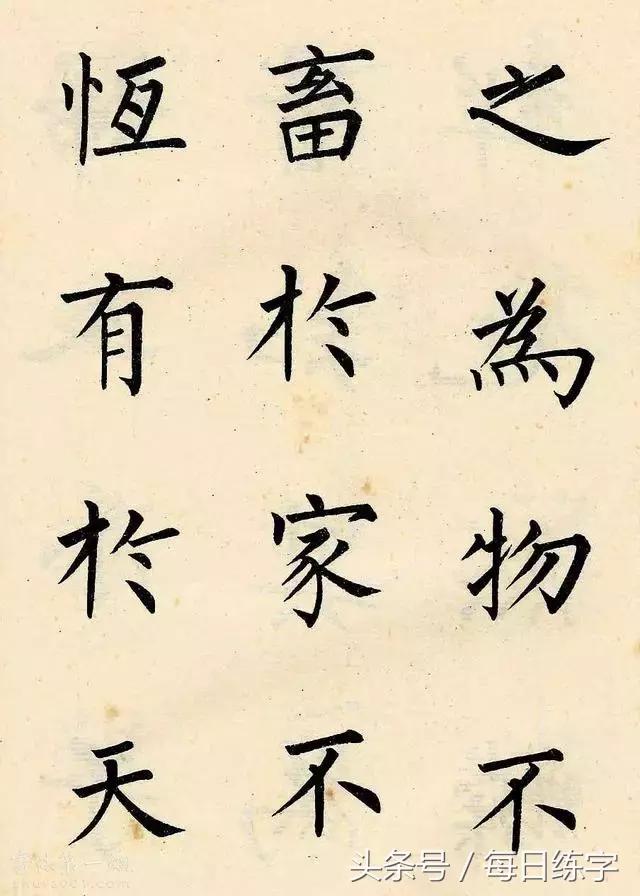 之為物不
畜於家不
恆有於天
头条号 / 每日练字